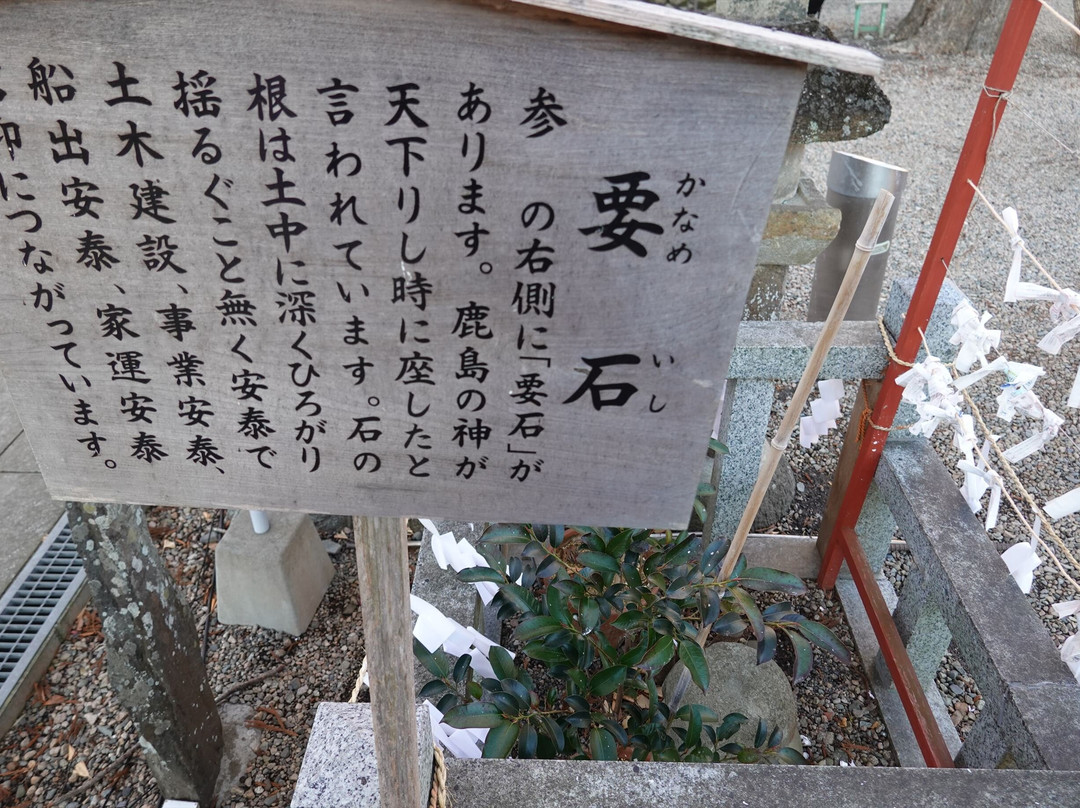 要石
かなめ いし
参 の右側に「要石」が
あります。鹿島の神が
天下りし時に座したと
言われています。石の
根は土中に深くひろがり
揺るぐこと無く安泰で
土木建設、事業安泰、
船出安泰、家運安泰
印につながっています。